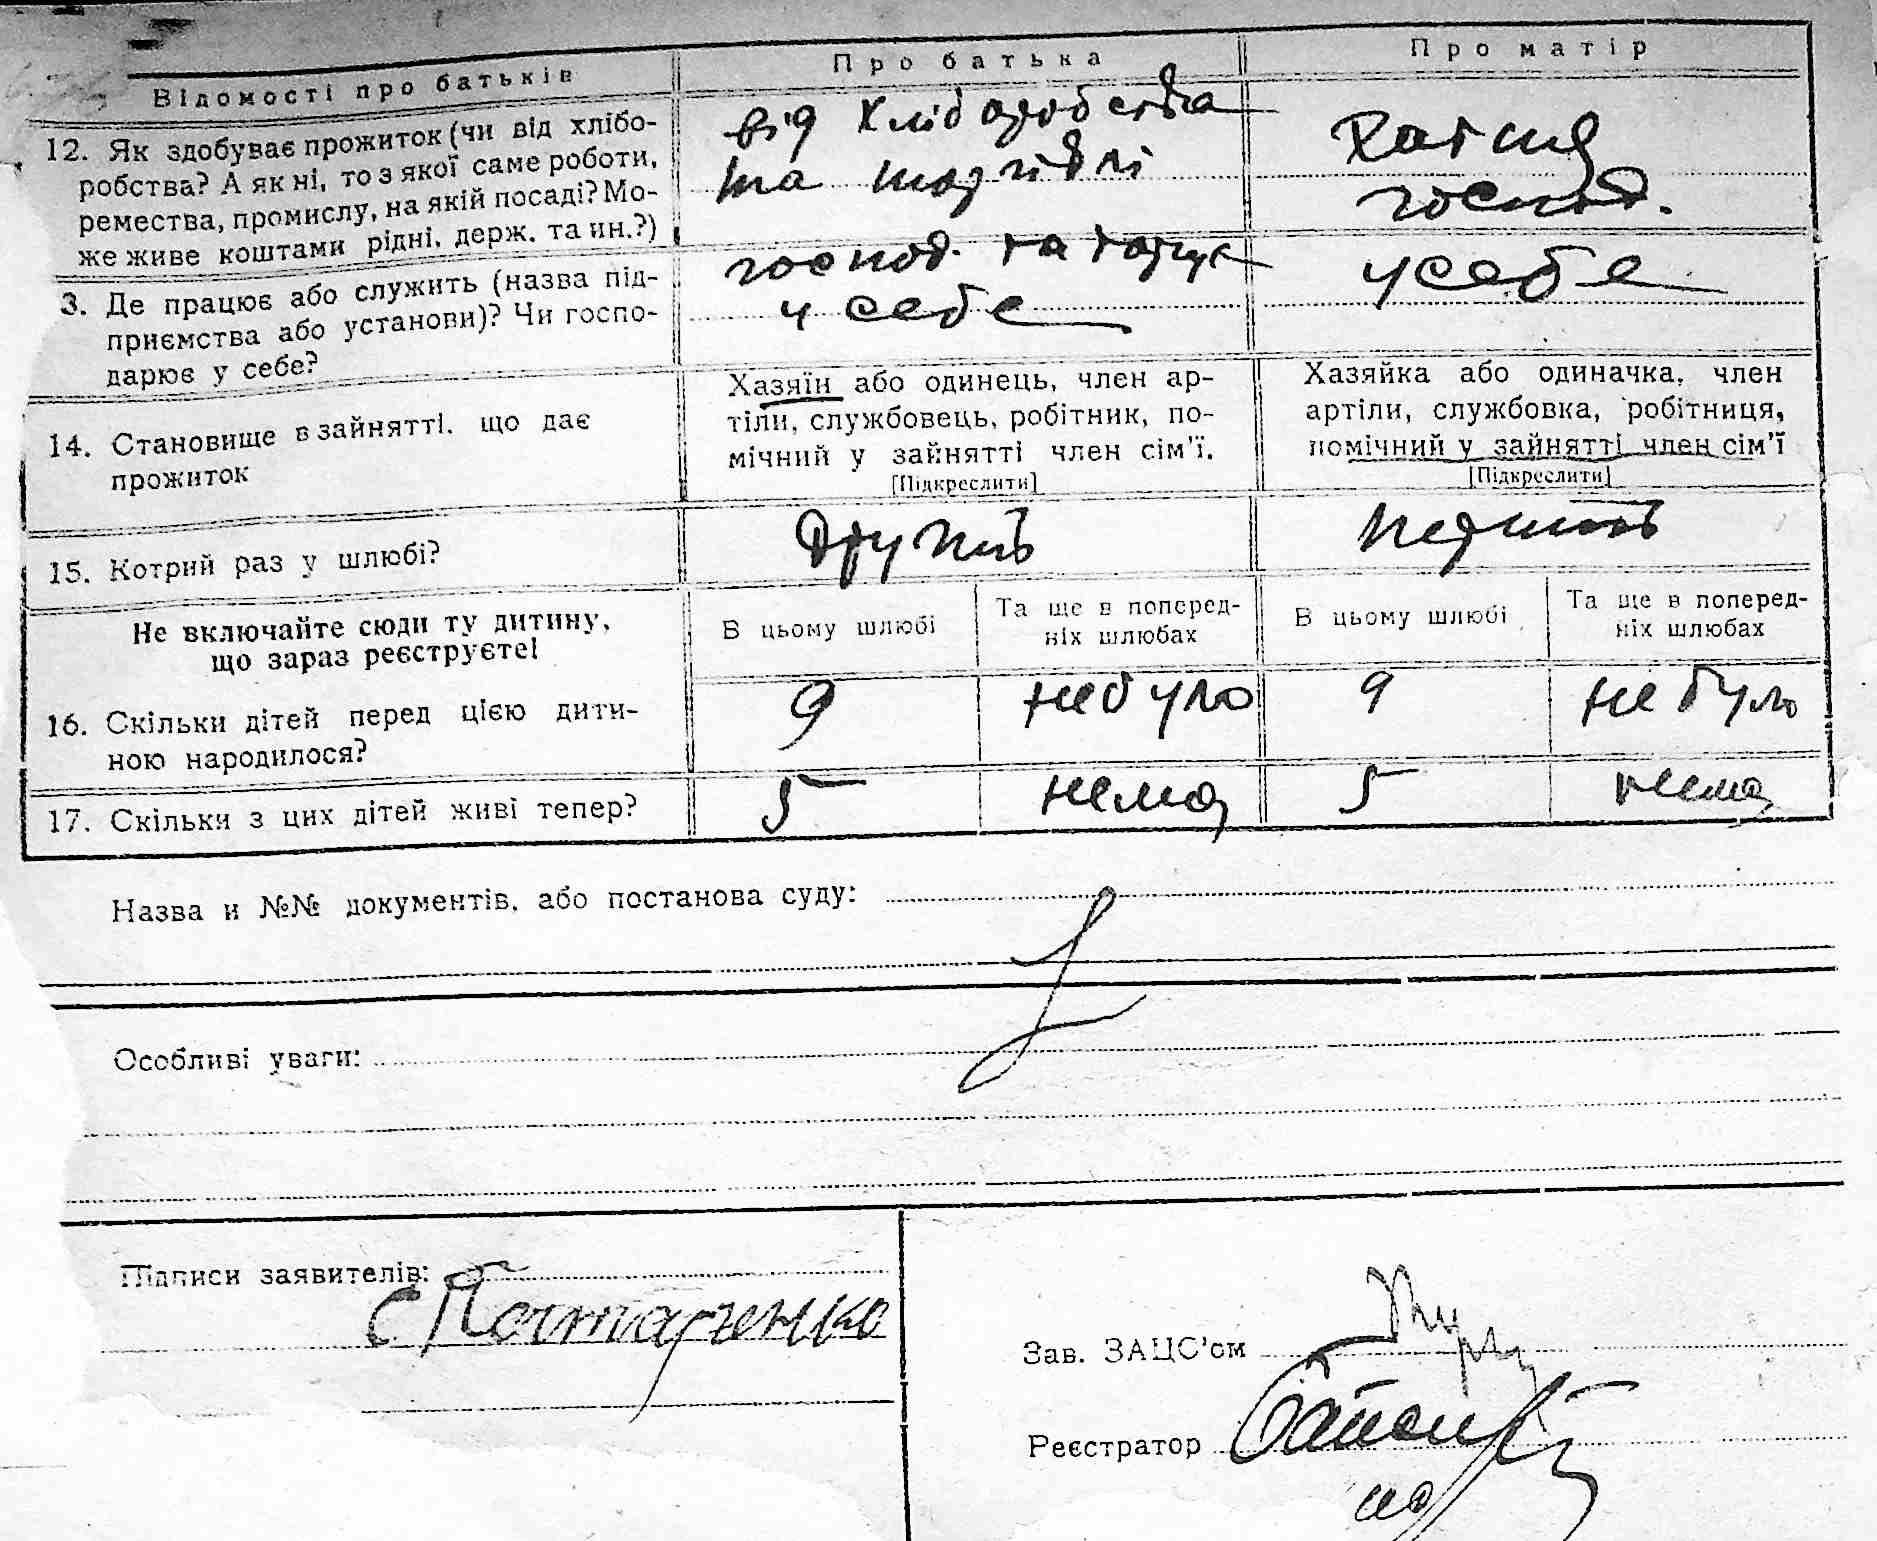 Відомості про батьків
Про батька
Про матір
12. Як здобуває прожиток (чи від хлібо-
робства? А як ні, то з якої саме роботи,
ремества, промислу, на якій посаді? Мо-
же живе коштами рідні, держ. та ин.?)
від хліборобства
та торгівлі
хатня
господ.
3. Де працює або служить (назва під-
приємства або установи)? Чи госпо-
дарює у себе?
господ. та торгує
у себе
у себе
14. Становище в зайнятті, що дає
прожиток
Хазяїн або одинець, член ар-
тіли, службовець, робітник, по-
мічний у зайнятті член сім'ї.
[Підкреслити]
Хазяйка або одиначка, член
артіли, службовка, робітниця,
помічний у зайнятті член сім'ї
[Підкреслити]
15. Котрий раз у шлюбі?
другий
перший
Не включайте сюди ту дитину,
що зараз реєструєте!
В цьому шлюбі
Та ще в поперед-
ніх шлюбах
В цьому шлюбі
Та ще в поперед-
ніх шлюбах
16. Скільки дітей перед цією дити-
ною народилося?
9
не було
9
не було
17. Скільки з цих дітей живі тепер?
5
нема
5
нема
Назва и №№ документів, або постанова суду:
Особливі уваги:
Підписи заявителів:
С Потарченко
Зав. ЗАЦС'ом
Реєстратор